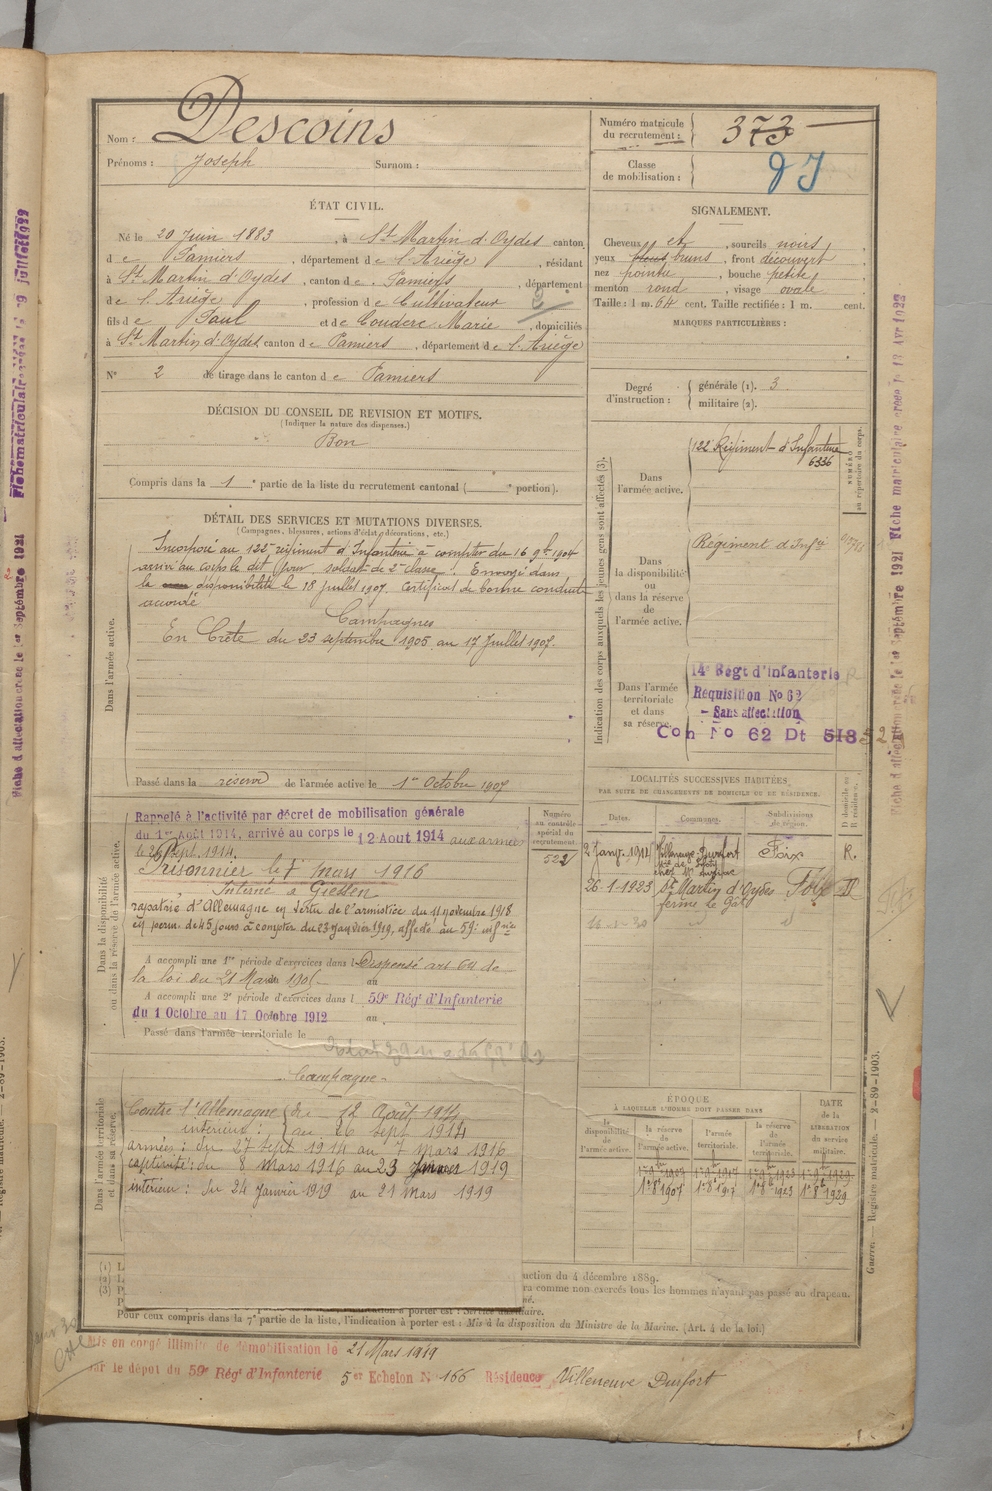 Nom : Descoins
Prénoms : Joseph Surnom :
Numéro matricule
du recrutement : 373
Classe
de mobilisation :
ÉTAT CIVIL.
Né le 20 Juin 1883, à St Martin d'Oydes canton
d e Pamiers, département de l'Ariège, résidant
à St Martin d'Oydes, canton d e Pamiers, département
de l'Ariège, profession de Cultivateur
fils d e Paul et de Couderc Marie, domiciliés
à St Martin d'Oydes canton d e Pamiers, département de l'Ariège
N° 2 de tirage dans le canton d e Pamiers
SIGNALEMENT.
Cheveux et, sourcils noirs,
yeux bruns, front découvert,
nez pointu, bouche petite,
menton rond, visage ovale.
Taille : 1 m. 64 cent. Taille rectifiée : 1 m. cent.
MARQUES PARTICULIÈRES :
DÉCISION DU CONSEIL DE REVISION ET MOTIFS.
(Indiquer la nature des dispenses.)
Bon
Compris dans la 1e partie de la liste du recrutement cantonal ( e portion).
Degré
d'instruction :
générale (1). 3
militaire (2).
DÉTAIL DES SERVICES ET MUTATIONS DIVERSES.
(Campagnes, blessures, actions d'éclat, décorations, etc.)
Dans l'armée active.
Incorporé au 122e régiment d'Infanterie à compter du 16 9bre 1904
arrivé au corps le dit jour soldat de 2e classe. Envoyé dans
la disponibilité le 18 Juillet 1907. Certificat de bonne conduite
accordé
Campagnes
En Crète du 23 septembre 1905 au 17 Juillet 1907.
Passé dans la réserve de l'armée active le 1er Octobre 1907
Indication des corps auxquels les jeunes gens sont affectés (3).
NUMÉRO
au répertoire du corps.
Dans
l'armée active.
122 Régiment d'Infanterie
6336
Dans
la disponibilité
ou
dans la réserve
de
l'armée active.
Régiment d'Infie
Dans l'armée
territoriale
et dans
sa réserve.
14e Régt d'infanterie
Requisition No 62
- Sans affectation
Con No 62 Dt 518
Dans la disponibilité
ou dans la réserve de l'armée active.
Rappelé à l'activité par décret de mobilisation générale
du 1er Août 1914, arrivé au corps le 12 Aout 1914 aux armées
le 26 Sept. 1914.
Prisonnier le 7 mars 1916
Interné à Giessen
rapatrié d'Allemagne en vertu de l'armistice du 11 novembre 1918
en perm. de 45 jours à compter du 23 janvier 1919, affecté au 59e inf
A accompli une 1re période d'exercices dans l Dispensé art 64 de
la loi du 21 Mars 1905 au
A accompli une 2e période d'exercices dans l 59e Régt d'Infanterie
du 1 Octobre au 17 Octobre 1912 au
Passé dans l'armée territoriale le
Numéro
au contrôle
spécial du
recrutement.
522
LOCALITÉS SUCCESSIVES HABITÉES
PAR SUITE DE CHANGEMENTS DE DOMICILE OU DE RÉSIDENCE.
Dates. Communes. Subdivisions
de région. D domicile ou
R résidence.
2 Janv. 1914 Villeneuve-Durfort Foix R.
26-1-1923 St Martin d'Oydes Foix D
ferme le Gât
Dans l'armée territoriale
et dans sa réserve.
Campagne
Contre l'Allemagne du 12 Août 1914
intérieur : au 26 sept 1914
armées : du 27 sept 1914 au 7 mars 1916
captivité : du 8 mars 1916 au 23 Janvier 1919
intérieur : du 24 Janvier 1919 au 21 Mars 1919
ÉPOQUE
À LAQUELLE L'HOMME DOIT PASSER DANS
DATE
de la
LIBÉRATION
du service
militaire.
la disponibilité
de
l'armée active.
la réserve
de
l'armée active.
l'armée
territoriale.
la réserve
de
l'armée
territoriale.
1er 8bre 1907 1er 8bre 1917 1er 8bre 1923 1er 8bre 1929
(1) L
(2) L
(3) P
uction du 4 décembre 1889.
ra comme non exercés tous les hommes n'ayant pas passé au drapeau.
l'indication à porter est : Service auxiliaire.
Pour ceux compris dans la 7e partie de la liste, l'indication à porter est : Mis à la disposition du Ministre de la Marine. (Art. 4 de la loi.)
Mis en congé illimité de démobilisation le 21 Mars 1919
par le dépôt du 59e Régt d'Infanterie 5er Echelon N° 166 Résidence Villeneuve Durfort
Guerre. — Registre matricule. — 2-89-1903.
Fiche d'affectation créée le 1er Septembre 1921 Fiche matriculaire